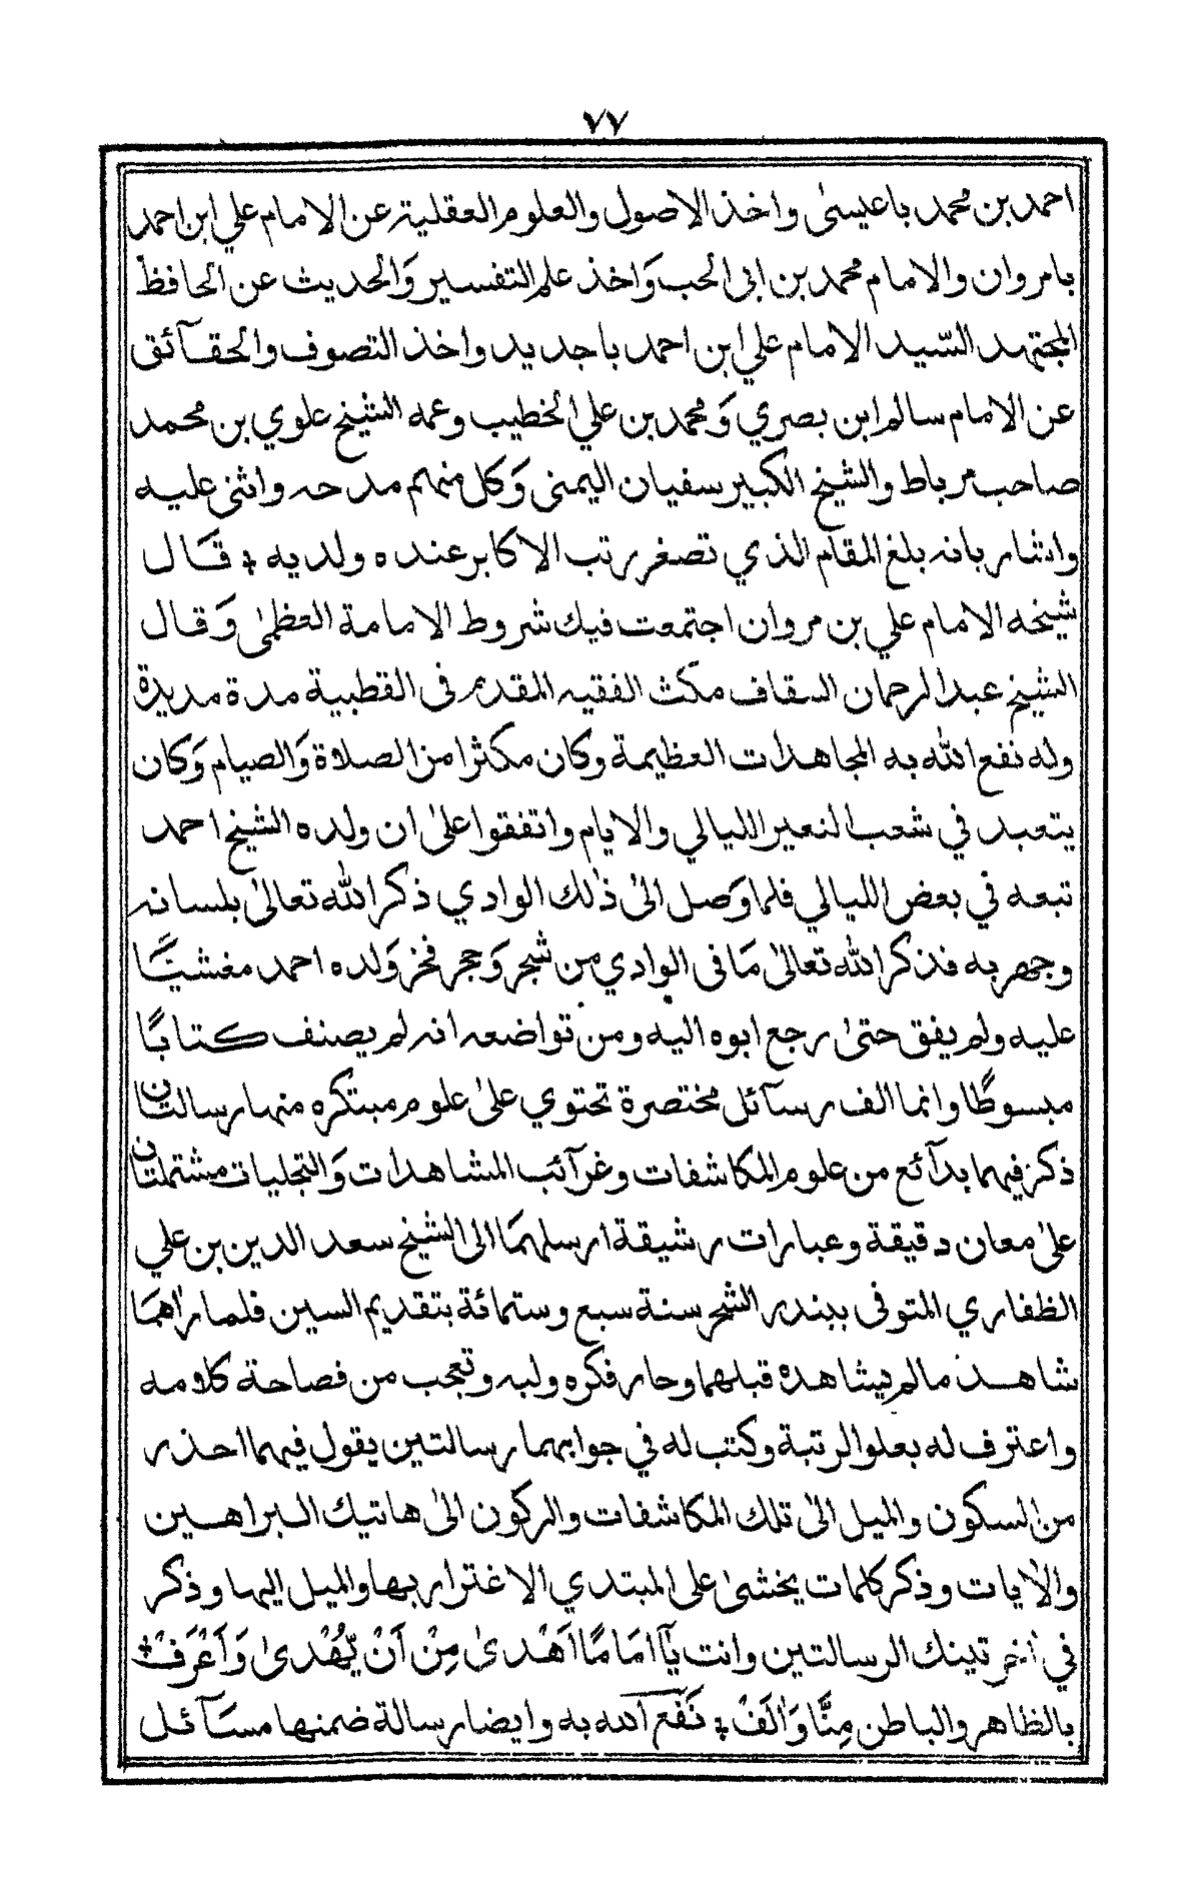 ٧٧
احمد بن محمد باعيسىٰ واخذ الاصول والعلوم العقلية عن الامام علي ابن احمد
بامروان والامام محمد بن ابى الحب وَاخذ علم التفسير وَالحديث عن الحافظ
المجتهد السّيد الامام علي ابن احمد باجديد واخذ التصوف والحقآئق
عن الامام سالم ابن بصري وَمحمد بن علي الخطيب وعمه الشيخ علوي بن محمد
صاحب مرباط والشيخ الكبير سفيان اليمنى وَكل منهم مدحه واثنى عليه
واشار بانه بلغ المقام الذي تصغر رتب الاكابر عنده ولديه ٭ قَال
شيخه الامام علي بن مروان اجتمعت فيك شروط الامامة العظمىٰ وَقال
الشيخ عبد الرحمان السقاف مكث الفقيه المقدم فى القطبية مدة مديدة
وله نفع الله به المجاهدات العظيمة وكان مكثرا من الصلاة وَالصيام وَكان
يتعبد في شعب النعير الليالي والايام واتفقوا علىٰ ان ولده الشيخ احمد
تبعه في بعض الليالي فلما وَصل الىٰ ذٰلك الوادي ذكر الله تعالىٰ بلسانه
وجهر به فذكر الله تعالىٰ مَا فى الوادي من شجر وَحجر فخر وَلده احمد مغشيًّا
عليه ولم يفق حتىٰ رجع ابوه اليه ومن تواضعه انه لم يصنف كتابًا
مبسوطًا وانما الف رسآئل مختصرة تحتوي علىٰ علوم مبتكره منها رسالتان
ذكر فيهما بدآئع من علوم المكاشفات وغرآئب المشاهدات وَالتجليات مشتملتان
علىٰ معان دقيقة وعبارات رشيقة ارسلهمَا الى الشيخ سعد الدين بن علي
الظفاري المتوفى ببندر الشحر سنة سبع وستمائة بتقديم السين فلما راٰهمَا
شاهد مالم يشاهده قبلهما وحار فكره ولبه وتعجب من فصاحة كلامه
واعترف له بعلو الرتبة وكتب له في جوابهما رسالتين يقول فيهما احذر
من السكون والميل الىٰ تلك المكاشفات والركون الىٰ هاتيك البراهين
والاٰيات وذكر كلمات يخشىٰ على المبتدي الاغترار بها والميل اليها وذكر
في اٰخر تينك الرسالتين وانت يَآ امَامًا اَهْدىٰ مِنْ اَنْ يُّهْدىٰ وَاَعْرَفْ ٭
بالظاهر والباطن مِنَّا وَاٰلَفْ ٭ نَفَع اَلله به وايضا رسالة ضمنها مسَآئل